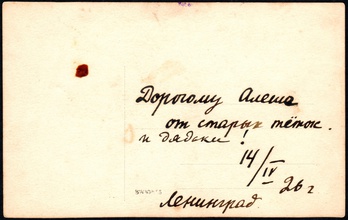 Дорогому Алеше
от старых тёток
и дядьки!
14/IV 26 г
Ленинград.